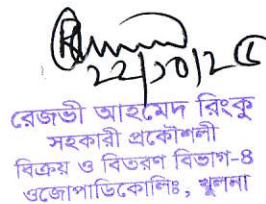 ২২/১০/২৫
রেজভী আহমেদ রিংকু
সহকারী প্রকৌশলী
বিক্রয় ও বিতরণ বিভাগ-৪
ওজোপাডিকোলিঃ, খুলনা